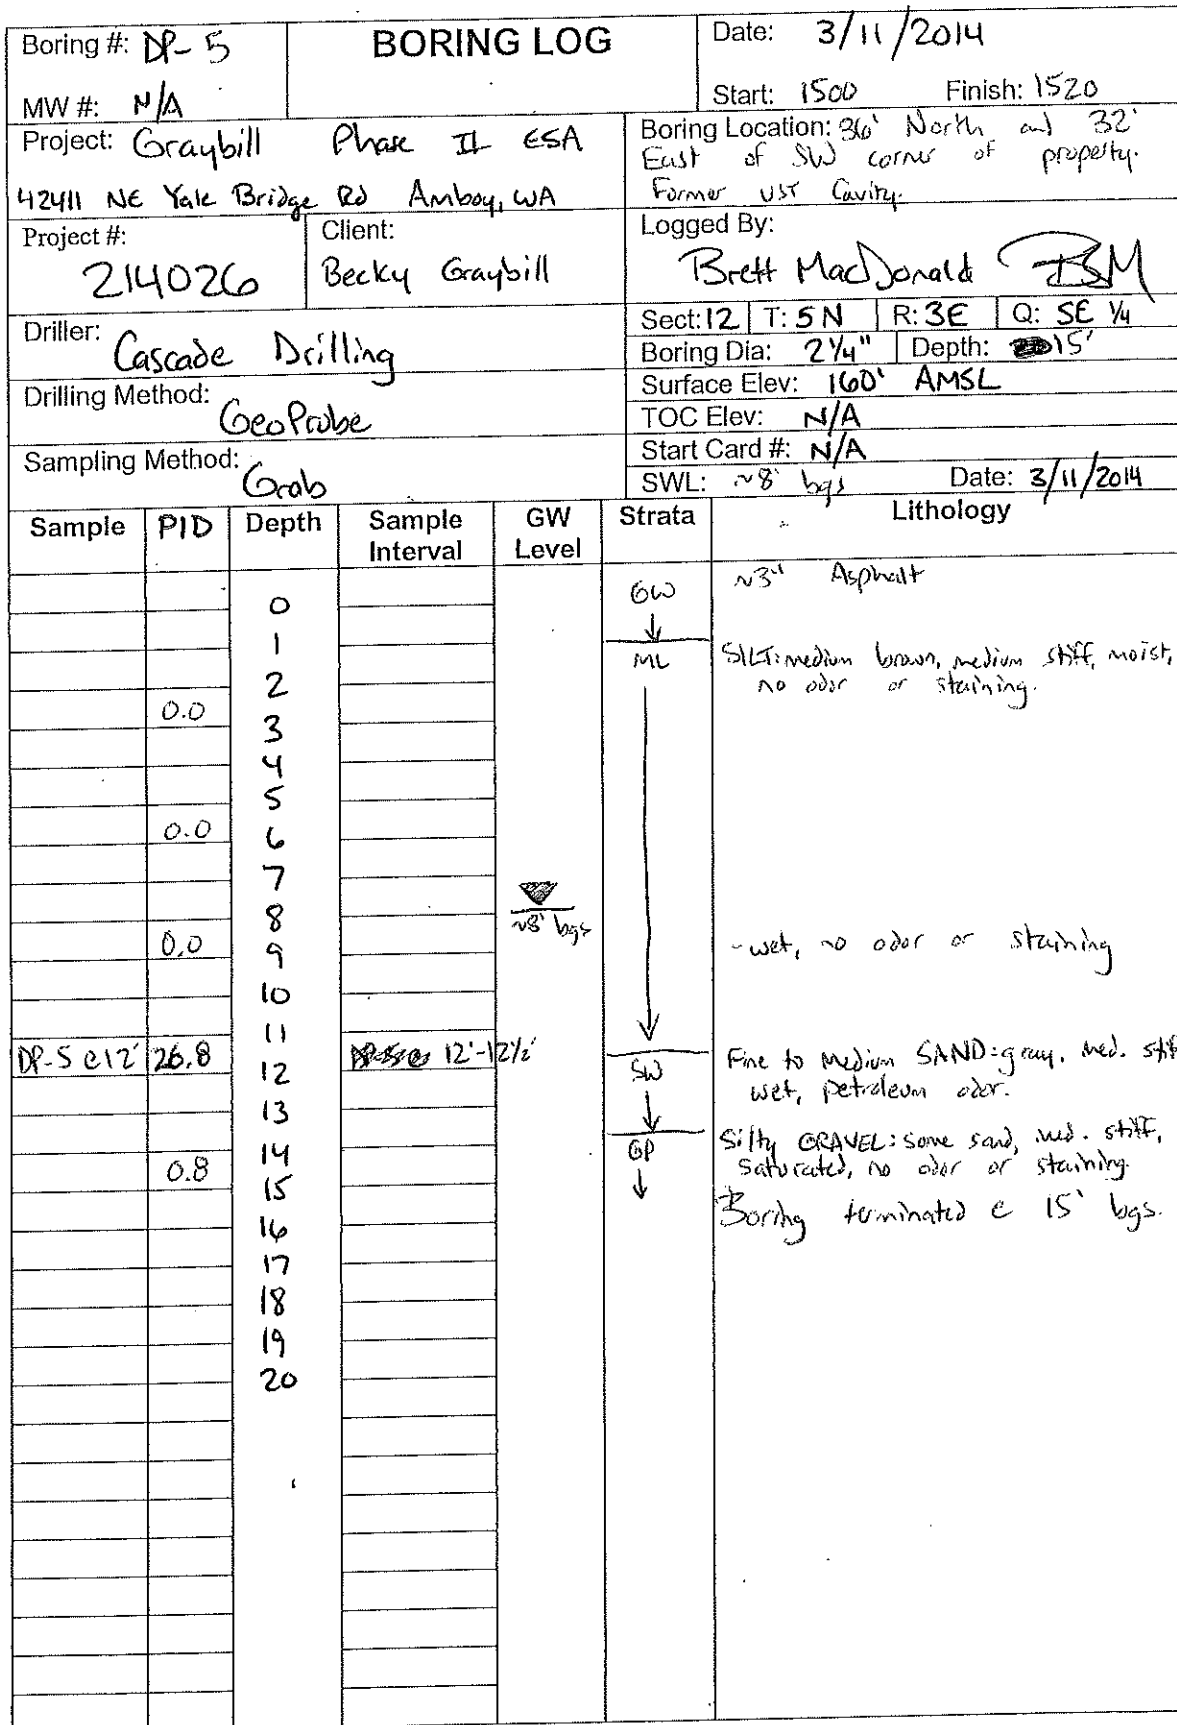 Boring #: DP-5
BORING LOG
Date: 3/11/2014
MW #: N/A
Start: 1500 Finish: 1520
Project: Graybill Phase II ESA
42411 NE Yale Bridge Rd Amboy, WA
Boring Location: 36' North and 32'
East of SW corner of property.
Former UST Cavity.
Project #:
214026
Client:
Becky Graybill
Logged By:
Brett MacDonald BSM
Driller:
Cascade Drilling
Sect: 12 T: 5N R: 3E Q: SE 1/4
Boring Dia: 2 1/4" Depth: 15'
Drilling Method:
GeoProbe
Surface Elev: 160' AMSL
TOC Elev: N/A
Sampling Method:
Grab
Start Card #: N/A
SWL: ~8' bgs Date: 3/11/2014
Sample PID Depth Sample Interval GW Level Strata Lithology
GW ~3" Asphalt
0
1
ML SILT: medium brown, medium stiff, moist,
no odor or staining.
2
0.0
3
4
5
0.0
6
7
8
~8' bgs
0.0
9
-wet, no odor or staining
10
11
DP-5 @ 12' 26.8 12'-12 1/2'
12
SW Fine to medium SAND: gray, med. stiff
wet, petroleum odor.
13
GP Silty GRAVEL: some sand, med. stiff,
saturated, no odor or staining.
14
0.8
15
Boring terminated @ 15' bgs.
16
17
18
19
20